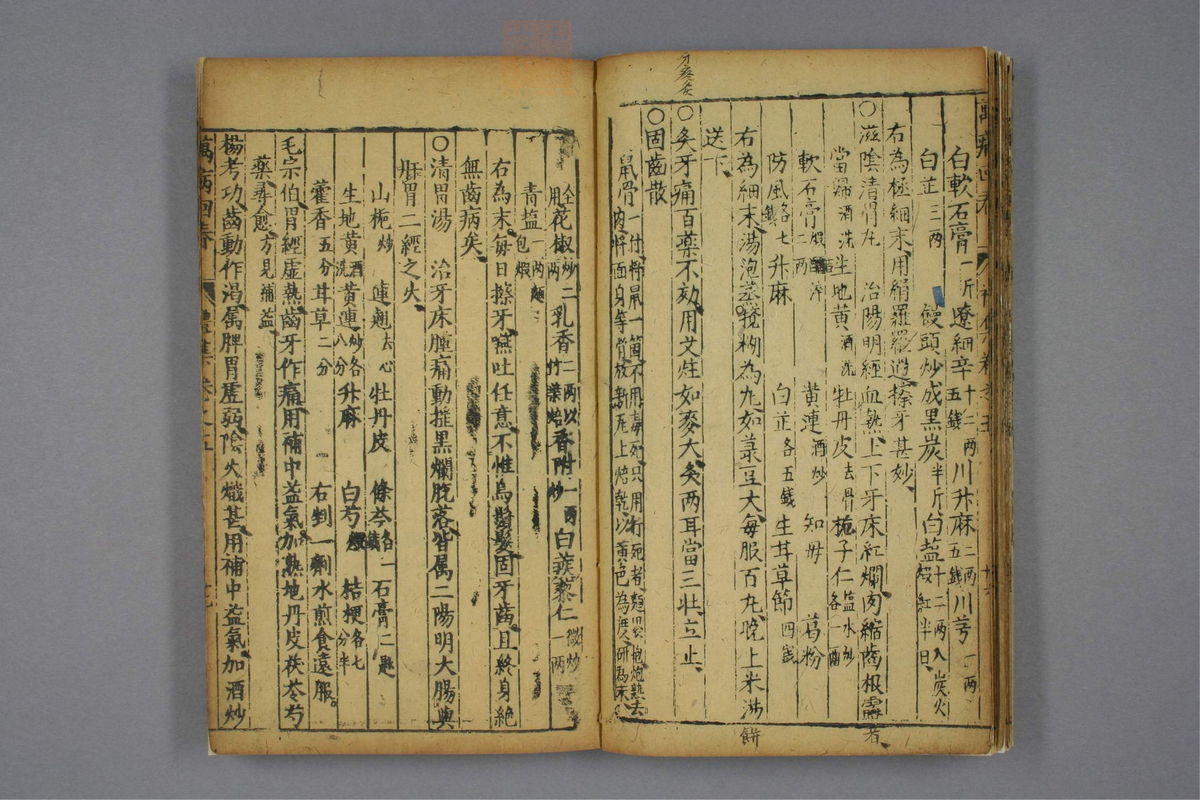 牙疼灸
白軟石膏一斤 遼細辛十二兩五錢 川升麻二兩五錢 川芎一兩
白芷三兩 饅頭炒成黑炭半斤 白盐十二兩入炭火煅紅半日
右為極細末用絹羅羅過擦牙甚妙
○滋陰清胃丸 治陽明經血熱上下牙床紅爛肉縮齒根露者
當歸酒洗 生地黃酒洗 牡丹皮去骨 梔子仁盐水炒各一兩
軟石膏煅 二兩 黃連酒炒 知母 葛粉
防風各七錢 升麻 白芷各五錢 生甘草節四錢
右為細末湯泡蒸餅攪糊為丸如菉豆大每服百丸晚上米湯
送下
○灸牙痛百藥不効用艾炷如麥大灸兩耳當三壯立止
○固齒散
鼠骨一付將鼠一箇不用毒死只用打死者麵裹炮熟去
肉 骨放新瓦上焙乾以黃色為度研為末
全用 花椒炒二兩 乳香二兩以竹葉焙 香附一兩炒 白蒺藜仁微炒一兩
青盐一兩麵包煨
右為末每日擦牙嚥吐任意不惟烏鬚髮固牙齒且終身絕
無齒病矣
○清胃湯 治牙床腫痛動搖黑爛脫落皆属二陽明大腸與
胃二經之火
山梔炒 連翹去心 牡丹皮 條芩各一錢 石膏二匙
生地黃酒洗 黃連炒各八分 升麻 白芍煨 桔梗各七分半
藿香五分 甘草二分 右剉一劑水煎食遠服
毛宗伯胃經虛熱齒牙作痛用補中益氣加熟地丹皮茯苓芍
藥尋愈方見補益
楊考功齒動作渴属脾胃虛弱陰火熾甚用補中益氣加酒炒
萬病回春